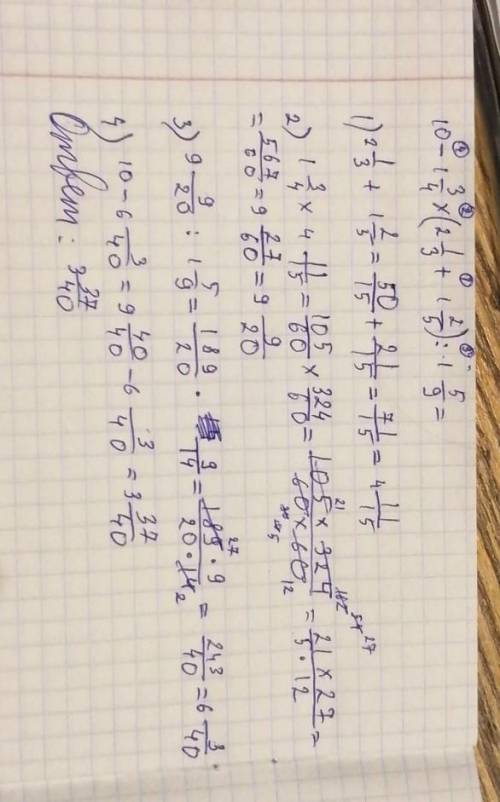 10 - 1 3/4 × (2 1/3 + 1 2/5) : 1 5/9 =
1) 2 1/3 + 1 2/5 = 50/15 + 21/15 = 71/15 = 4 11/15
2) 1 3/4 × 4 11/15 = 105/60 × 324/60 = 105 × 324 / 60 × 60 = 21 × 27 / 5 · 12 =
= 567/60 = 9 27/60 = 9 9/20
3) 9 9/20 : 1 5/9 = 189/20 · 9/14 = 189 · 9 / 20 · 14 = 243/40 = 6 3/40
4) 10 - 6 3/40 = 9 40/40 - 6 3/40 = 3 37/40
Ответ: 3 37/40